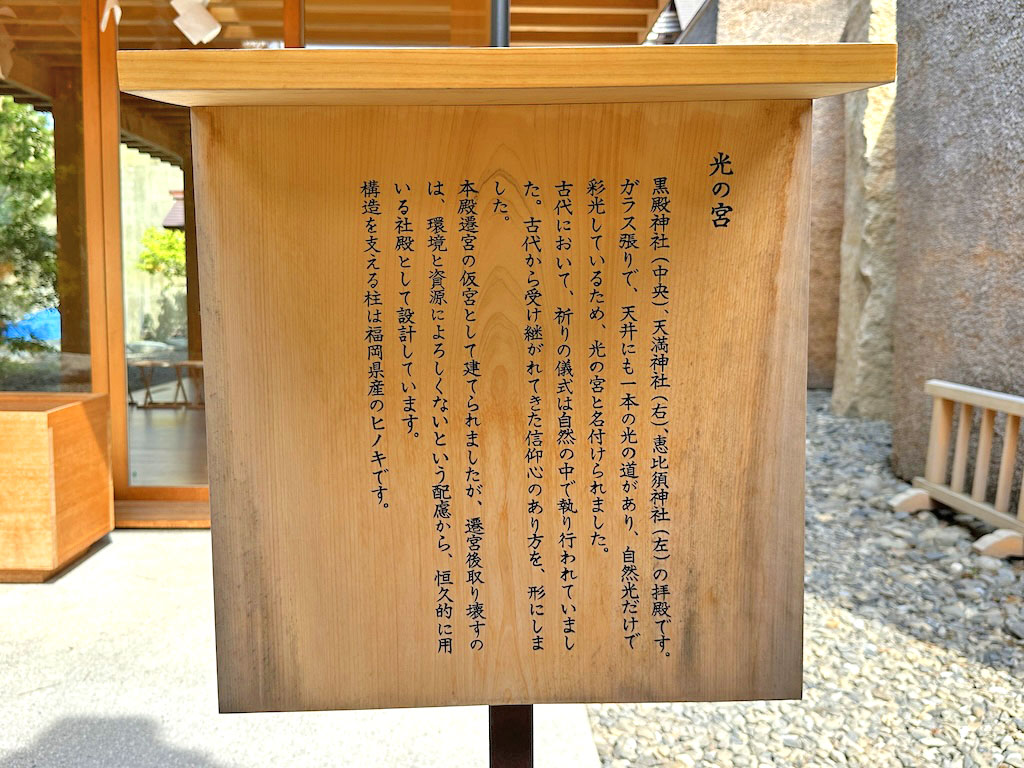 光の宮
黒殿神社（中央）、天満神社（右）、恵比須神社（左）の拝殿です。
ガラス張りで、天井にも一本の光の道があり、自然光だけで
彩光しているため、光の宮と名付けられました。
古代において、祈りの儀式は自然の中で執り行われていまし
た。古代から受け継がれてきた信仰心のあり方を、形にしま
した。
本殿遷宮の仮宮として建てられましたが、遷宮後取り壊すの
は、環境と資源によろしくないという配慮から、恒久的に用
いる社殿として設計しています。
構造を支える柱は福岡県産のヒノキです。